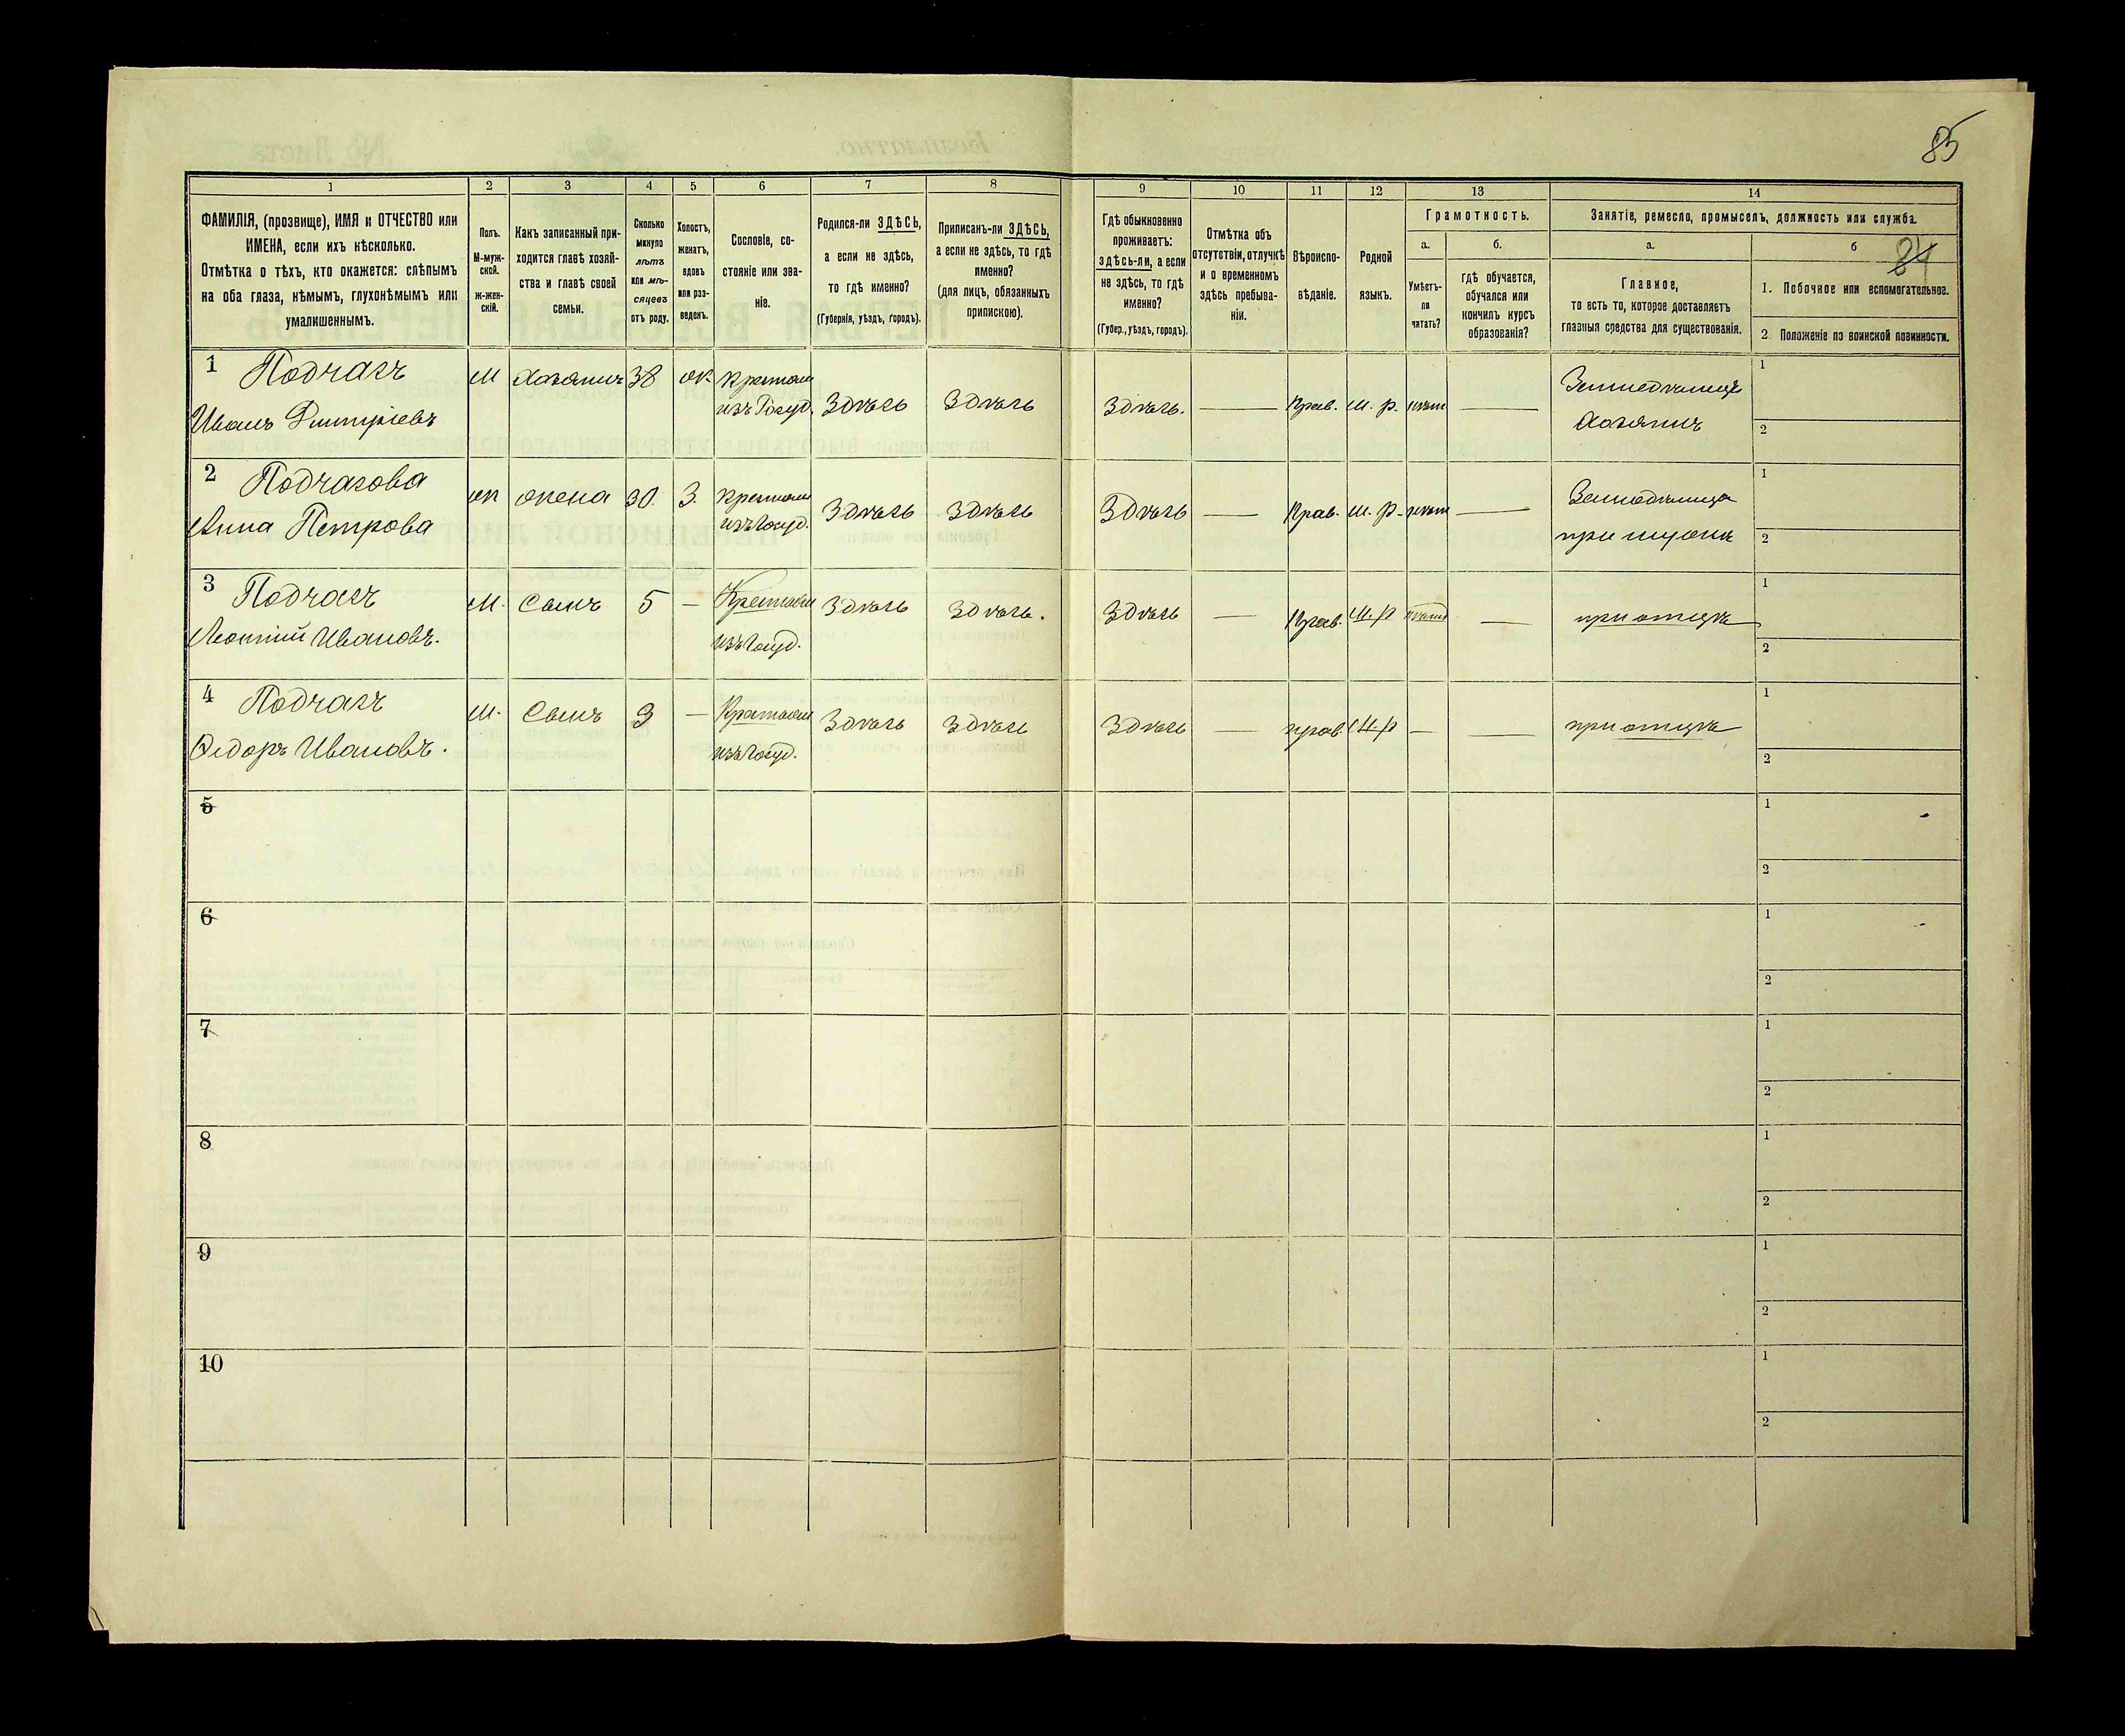 85
1 2 3 4 5 6 7 8 9 10 11 12 13 14
ФАМИЛІЯ, (прозвище), ИМЯ и ОТЧЕСТВО или
ИМЕНА, если ихъ нѣсколько.
Отмѣтка о тѣхъ, кто окажется: слѣпымъ
на оба глаза, нѣмымъ, глухонѣмымъ или
умалишеннымъ.
Полъ.
М-муж-
ской.
Ж-жен-
скій.
Какъ записанный при-
ходится главѣ хозяй-
ства и главѣ своей
семьи.
Сколько
минуло
лѣтъ
или мѣ-
сяцевъ
отъ роду.
Холостъ,
женатъ,
вдовъ
или раз-
веденъ.
Сословіе, со-
стояніе или зва-
ніе.
Родился-ли ЗДѢСЬ,
а если не здѣсь,
то гдѣ именно?
(Губернія, уѣздъ, городъ).
Приписанъ-ли ЗДѢСЬ,
а если не здѣсь, то гдѣ
именно?
(для лицъ, обязанныхъ
припискою).
Гдѣ обыкновенно
проживаетъ:
здѣсь-ли, а если
не здѣсь, то гдѣ
именно?
(Губер., уѣздъ, городъ).
Отмѣтка объ
отсутствіи, отлучкѣ
и о временномъ
здѣсь пребыва-
ніи.
Вѣроиспо-
вѣданіе.
Родной
языкъ.
Грамотность.
а.
Умѣетъ-
ли
читать?
б.
гдѣ обучается,
обучался или
кончилъ курсъ
образованія?
Занятіе, ремесло, промыселъ, должность или служба.
а.
Главное,
то есть то, которое доставляетъ
главныя средства для существованія.
б
84
1. Побочное или вспомогательное.
2 Положеніе по воинской повинности.
1 Подчагъ М Хозяинъ 38 ж. Крестьян Здѣсь Здѣсь Здѣсь. — Прав. М. р. нѣтъ — Земледѣлецъ 1
Иванъ Дмитріевъ изъ Госуд. Хозяинъ 2
2 Подчагова ж жена 30. З. Крестьян Здѣсь Здѣсь Здѣсь — Прав. М. р. нѣтъ — Земледѣлица 1
Анна Петрова изъ Госуд. при мужѣ 2
3 Подчагъ М. Сынъ 5 — Крестьян Здѣсь Здѣсь. Здѣсь — Прав. М. р нѣтъ — при отцѣ 1
Леонтій Ивановъ. изъ Госуд. 2
4 Подчагъ М. Сынъ 3 — Крестьян Здѣсь Здѣсь Здѣсь — прав. М. р — — при отцѣ 1
Ѳедоръ Ивановъ. изъ Госуд. 2
5 1
2
6 1
2
7 1
2
8 1
2
9 1
2
10 1
2